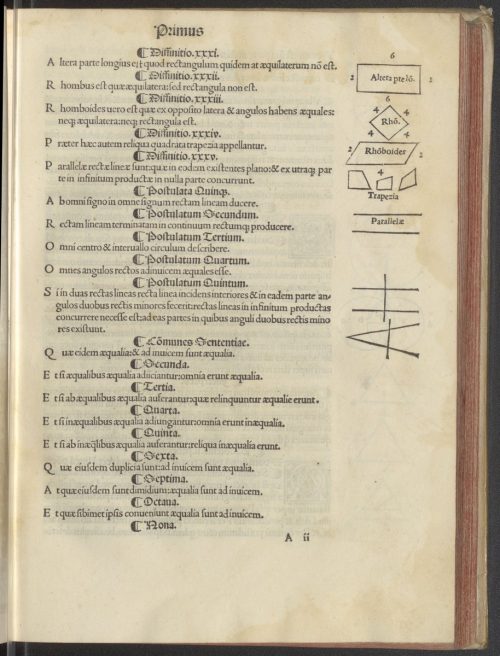 Primus
¶ Diffinitio.xxxi.
A ltera parte longius est quod rectangulum quidem at æquilaterum nō est.
¶ Diffinitio.xxxii.
R hombus est quæ æquilatera: sed rectangula non est.
¶ Diffinitio.xxxiii.
R homboides uero est quæ ex opposito latera & angulos habens æquales:
neq; æquilatera: neq; rectangula est.
¶ Diffinitio.xxxiv.
P ræter hæc autem reliqua quadrata trapezia appellantur.
¶ Diffinitio.xxxv.
P arallelæ rectæ lineæ sunt: quæ in eadem existentes plano: & ex utraq; par
te in infinitum productæ in nulla parte concurrunt.
¶ Postulata Quinq.
A b omni signo in omne signum rectam lineam ducere.
¶ Postulatum Secundum.
R ectam lineam terminatam in continuum rectumq; producere.
¶ Postulatum Tertium.
O mni centro & interuallo circulum describere.
¶ Postulatum Quartum.
O mnes angulos rectos adinuicem æquales esse.
¶ Postulatum Quintum.
S i in duas rectas lineas recta linea incidens interiores & in eadem parte an-
gulos duobus rectis minores fecerit: rectas lineas in infinitum productas
concurrere necesse est: ad eas partes in quibus anguli duobus rectis mino
res existunt.
¶ Cōmunes Sententiae.
Q uæ eidem æqualia: & ad inuicem sunt æqualia.
¶ Secunda.
E t si æqualibus æqualia adiiciantur: omnia erunt æqualia.
¶ Tertia.
E t si ab æqualibus æqualia auferantur: quæ relinquuntur æqualia erunt.
¶ Quarta.
E t si inæqualibus æqualia adiungantur: omnia erunt inæqualia.
¶ Quinta.
E t si ab inæq̄libus æqualia auferantur: reliqua inæqualia erunt.
¶ Sexta.
Q uæ eiusdem duplicia sunt: ad inuicem sunt æqualia.
¶ Septima.
A t quæ eiusdem sunt dimidium: æqualia sunt ad inuicem.
¶ Octaua.
E t quæ sibimet ipsis conueniunt æqualia sunt ad inuicem.
¶ Nona.
A ii
6
2 Altera pte lō. 2
6
4 4
Rhō.
4 4
2 Rhōboides 2
4
Trapezia
Parallelæ